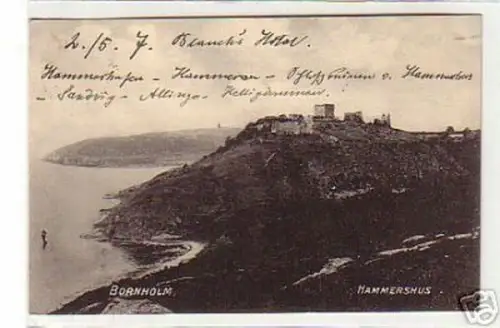 2./5. 7. Blanch's Hotel.
Hammerhafen – Hammeren – Schloßruinen v. Hammershus
– Sandvig – Allinge –
BORNHOLM
HAMMERSHUS